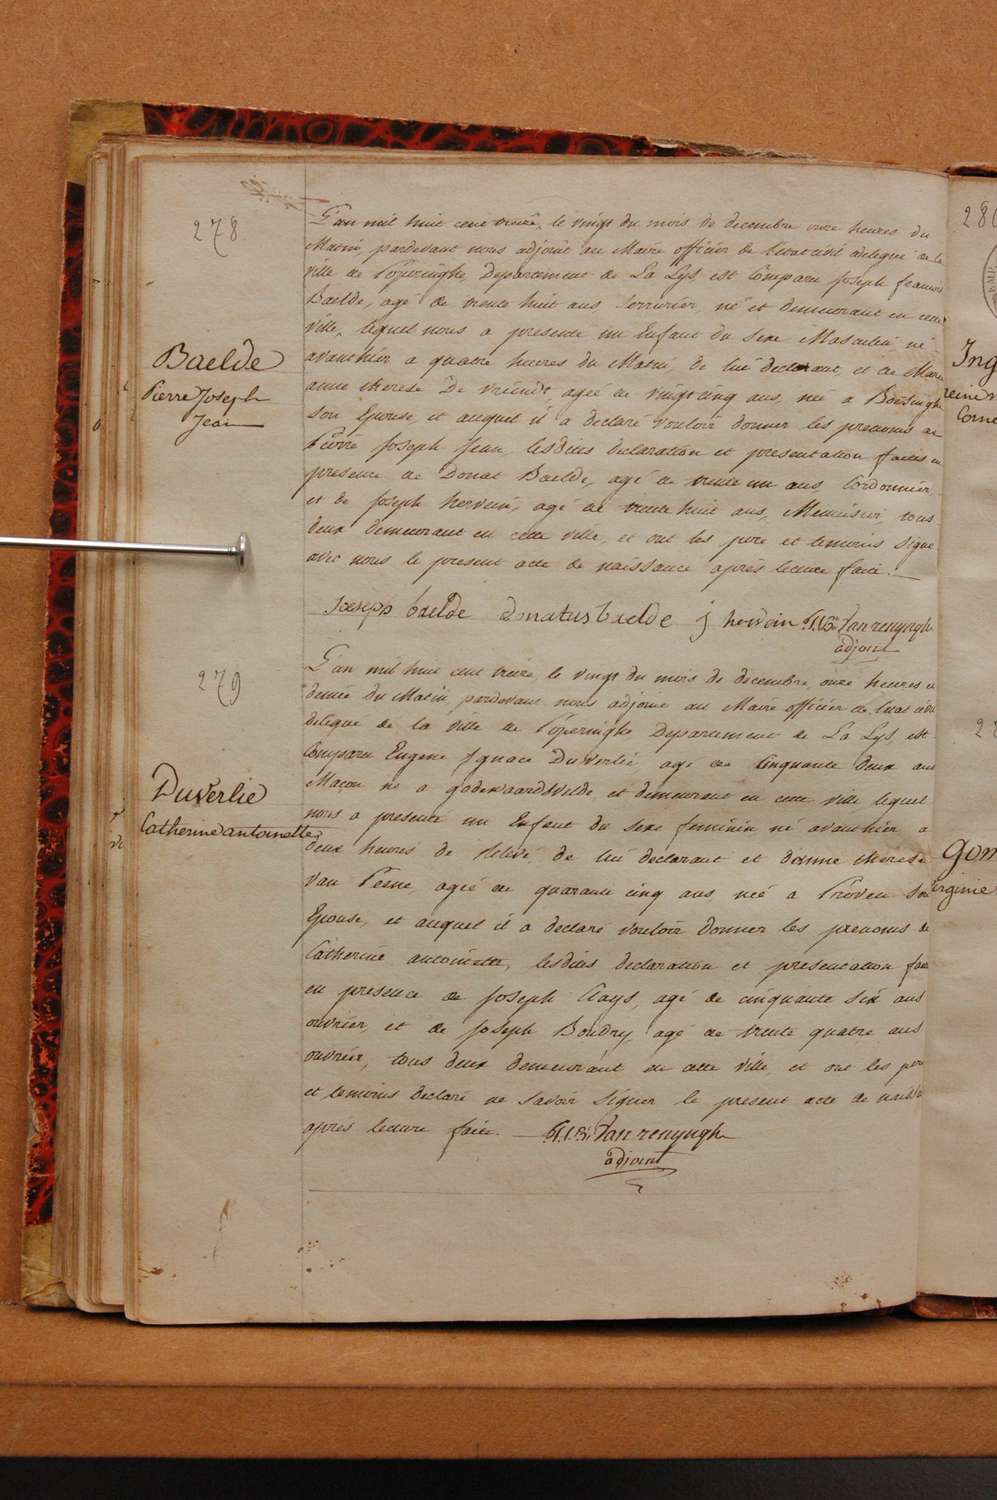 278
L'an mil huit cent treize, le vingt du mois de decembre onze heures du
Matin, pardevant nous adjoint au Maire officier de l'etat civil delegué de la
ville de Poperinghe, Departement de La Lys, est Comparu Joseph francois
Baelde, agé de trente huit ans, Serrurier, né et demeurant en cette
ville, lequel nous a presenté un Enfant du sexe Masculin né
avanthier a quatre heures du Matin, de lui declarant, et de Marie
anne therese De vriendt, ageé de vingt cinq ans, neé a Boesinghe
son Epouse, et auquel il a declaré vouloir donner les prenoms de
Pierre Joseph Jean, lesdites declaration et presentation faites en
presence de Donat Baelde, agé de trente un ans Cordonnier,
et de Joseph hervein, agé de trente huit ans, Menuisier, tous
deux demeurant en cette ville, et ont les pere et temoins signé
avec nous le present acte de naissance après lecture faite.
Baelde
Pierre Joseph
Jean
Joseph baelde donatus baelde j hervein Van renynghe
adjoint
279
L'an mil huit cent treize, le vingt du mois de decembre, onze heures et
demie du Matin pardevant nous adjoint au Maire officier de l'etat civil
delegué de la ville de Poperinghe Departement de La Lys, est
Comparu Eugene Ignace Duverlié agé de Cinquante deux ans
Macon né a godewaardsvelde, et demeurant en cette ville lequel
nous a presenté un Enfant du sexe feminin né avanthier a
deux heures de relevé, de lui declarant et d'anne therese
Van Pesne, ageé de quarante cinq ans neé a Proven son
Epouse, et auquel il a declaré vouloir donner les prenoms de
Catherine antoinette, lesdites declaration et presentation faites
en presence de Joseph Clays, agé de cinquante six ans
ouvrier, et de Joseph Boudry, agé de trente quatre ans
ouvrier, tous deux demeurant en cette ville, et ont les pere
et temoins declaré ne savoir signer le present acte de naissance
après lecture faite. Van renynghe
adjoint
Duverlie
Catherine antoinette
Ing
Corne
gom
irginie